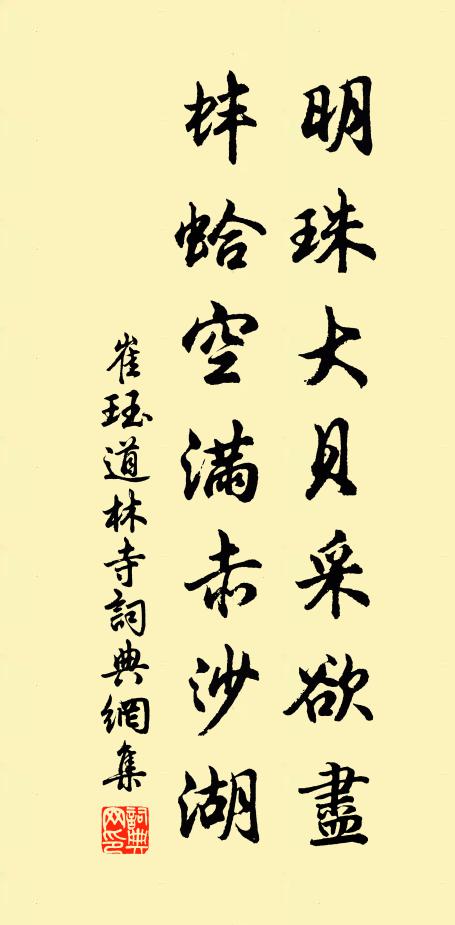 明珠大貝采欲盡
蚌蛤空滿赤沙湖
崔珏道林寺詞典網集
詞典网印